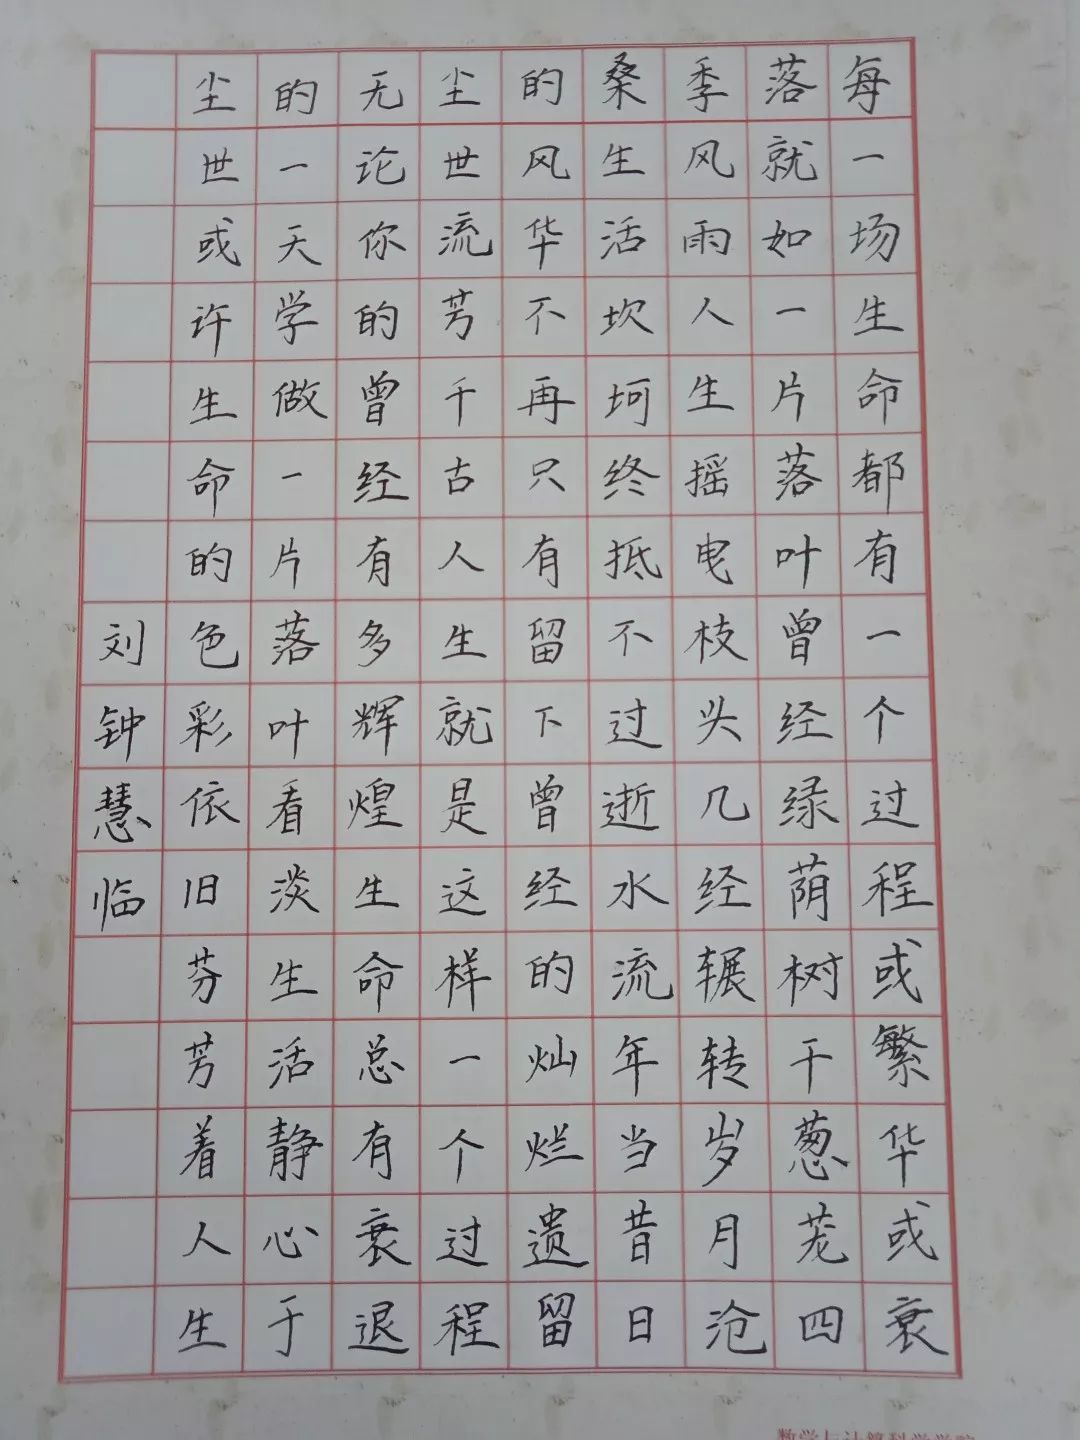 每一场生命都有一个过程或繁华或衰
落就如一片落叶曾经绿荫树干葱茏四
季风雨人生摇曳枝头几经辗转岁月沧
桑生活坎坷终抵不过逝水流年当昔日
的风华不再只有留下曾经的灿烂遗留
尘世流芳千古人生就是这样一个过程
无论你的曾经有多辉煌生命总有衰退
的一天学做一片落叶看淡生活静心于
尘世或许生命的色彩依旧芬芳着人生
刘钟慧临